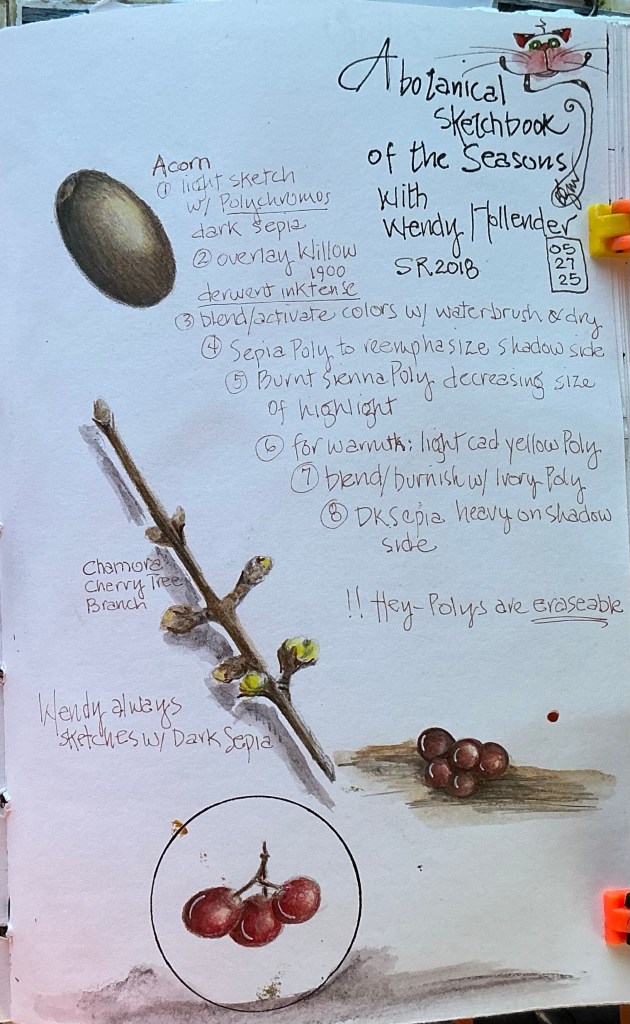 A botanical
Sketchbook
of the Seasons
with
Wendy Hollender
SR2018
05
27
25
Acorn
① light sketch
w/ Polychromos
dark sepia
② overlay Willow
1900
derwent inktense
③ blend/activate colors w/ waterbrush & dry
④ Sepia Poly to reemphasize shadow side
⑤ Burnt Sienna Poly decreasing size
of highlight
⑥ for warmth: light cad yellow Poly
⑦ blend/burnish w/ Ivory Poly
⑧ DK Sepia heavy on shadow
side
!! Hey- Polys are eraseable
Chamora
Cherry Tree
Branch
Wendy always
sketches w/ Dark Sepia